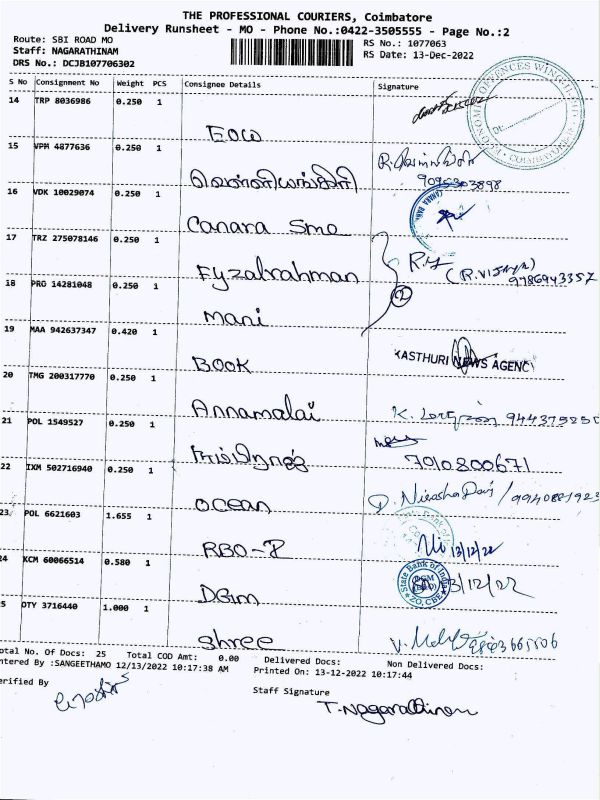 THE PROFESSIONAL COURIERS, Coimbatore
Delivery Runsheet - MO - Phone No.:0422-3505555 - Page No.:2
Route: SBI ROAD MO
RS No.: 1077063
Staff: NAGARATHINAM
RS Date: 13-Dec-2022
DRS No.: DCJB107706302
S No Consignment No Weight PCS Consignee Details Signature
14 TRP 8036986 0.250 1
EOW
ECONOMIC OFFENCES WING
COIMBATORE
15 VPM 4877636 0.250 1
வெள்ளியங்கிரி
16 VDK 10029074 0.250 1
Canara Sme
CANARA BANK
17 TRZ 275078146 0.250 1
Fyzalrahman
R.V (R.VIJAYA)
9786943357
18 PRO 14281048 0.250 1
Mani
2
19 MAA 942637347 0.420 1
BOOK
KASTHURI NEWS AGENCY
20 TMG 200317770 0.250 1
Annamalai
21 POL 1549527 0.250 1
7010800671
22 IXM 502716940 0.250 1
Ocean
23 POL 6621603 1.655 1
RBO-7
13/12/22
24 KCM 60066514 0.580 1
DGM
State Bank of India
3/12/22
5 OTY 3716440 1.000 1
Shree
otal No. Of Docs: 25 Total COD Amt: 0.00 Delivered Docs: Non Delivered Docs:
ntered By :SANGEETHAMO 12/13/2022 10:17:38 AM Printed On: 13-12-2022 10:17:44
erified By
Staff Signature
T.Nagarathinam